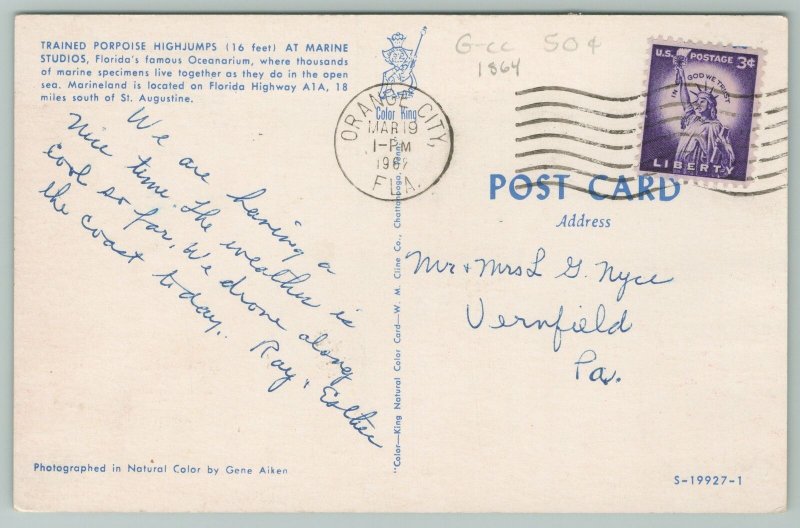 TRAINED PORPOISE HIGHJUMPS (16 feet) AT MARINE
STUDIOS, Florida's famous Oceanarium, where thousands
of marine specimens live together as they do in the open
sea. Marineland is located on Florida Highway A1A, 18
miles south of St. Augustine.
We are having a
nice time. The weather is
cool so far. We drove along
the coast today.
Ray & Esther
Photographed in Natural Color by Gene Aiken
Color King
"Color-King Natural Color Card—W. M. Cline Co., Chattanooga, Tenn."
G-cc 50¢
1864
ORANGE CITY,
MAR 19
1-PM
FLA.
U.S. POSTAGE 3¢
IN GOD WE TRUST
LIBERTY
POST CARD
Address
Mr & Mrs L G. Nyce
Vernfield
Pa.
S-19927-1